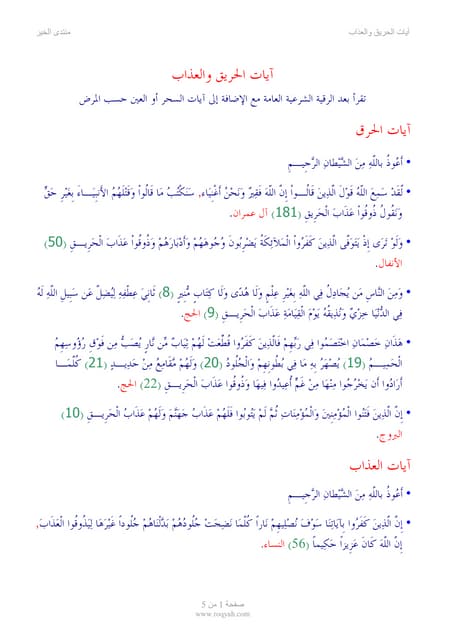 آيات الحريق والعذاب
منتدى الخير
آيات الحريق والعذاب
تقرأ بعد الرقية الشرعية العامة مع الإضافة إلى آيات السحر أو العين حسب المرض
آيات الحرق
• أَعُوذُ بِاللّهِ مِنَ الشَّيْطانِ الرَّجِيـمِ
• لَقَدْ سَمِعَ اللّهُ قَوْلَ الَّذِينَ قَالُـواْ إِنَّ اللّهَ فَقِيرٌ وَنَحْنُ أَغْنِيَاء، سَنَكْتُبُ مَا قَالُواْ وَقَتْلَهُمُ الأَنبِيَـاءَ بِغَيْرِ حَقٍّ
وَنَقُولُ ذُوقُواْ عَذَابَ الْحَرِيقِ (181) آل عمران.
• وَلَوْ تَرَى إِذْ يَتَوَفَّى الَّذِينَ كَفَرُواْ الْمَلآئِكَةُ يَضْرِبُونَ وُجُوهَهُمْ وَأَدْبَارَهُمْ وَذُوقُواْ عَذَابَ الْحَرِيـقِ (50)
الأنفال.
• وَمِنَ النَّاسِ مَن يُجَادِلُ فِي اللَّهِ بِغَيْرِ عِلْمٍ وَلَا هُدًى وَلَا كِتَابٍ مُّنِيرٍ (8) ثَانِيَ عِطْفِهِ لِيُضِلَّ عَن سَبِيلِ اللَّهِ لَهُ
فِي الدُّنْيَا خِزْيٌ وَنُذِيقُهُ يَوْمَ الْقِيَامَةِ عَذَابَ الْحَرِيـقِ (9) الحج.
• هَذَانِ خَصْمَانِ اخْتَصَمُوا فِي رَبِّهِمْ فَالَّذِينَ كَفَرُوا قُطِّعَتْ لَهُمْ ثِيَابٌ مِّن نَّارٍ يُصَبُّ مِن فَوْقِ رُؤُوسِهِمُ
الْحَمِيـمُ (19) يُصْهَرُ بِهِ مَا فِي بُطُونِهِمْ وَالْجُلُودُ (20) وَلَهُمْ مَّقَامِعُ مِنْ حَدِيـدٍ (21) كُلَّمَـا
أَرَادُوا أَن يَخْرُجُوا مِنْهَا مِنْ غَمٍّ أُعِيدُوا فِيهَا وَذُوقُوا عَذَابَ الْحَرِيـقِ (22) الحج.
• إِنَّ الَّذِينَ فَتَنُوا الْمُؤْمِنِينَ وَالْمُؤْمِنَاتِ ثُمَّ لَمْ يَتُوبُوا فَلَهُمْ عَذَابُ جَهَنَّمَ وَلَهُمْ عَذَابُ الْحَرِيـقِ (10)
البروج.
آيات العذاب
• أَعُوذُ بِاللّهِ مِنَ الشَّيْطانِ الرَّجِيـمِ
• إِنَّ الَّذِينَ كَفَرُواْ بِآيَاتِنَا سَوْفَ نُصْلِيهِمْ نَاراً كُلَّمَا نَضِجَتْ جُلُودُهُمْ بَدَّلْنَاهُمْ جُلُوداً غَيْرَهَا لِيَذُوقُوا الْعَذَابَ،
إِنَّ اللّهَ كَانَ عَزِيزاً حَكِيماً (56) النساء.
صفحة 1 من 5
www.roqyah.com